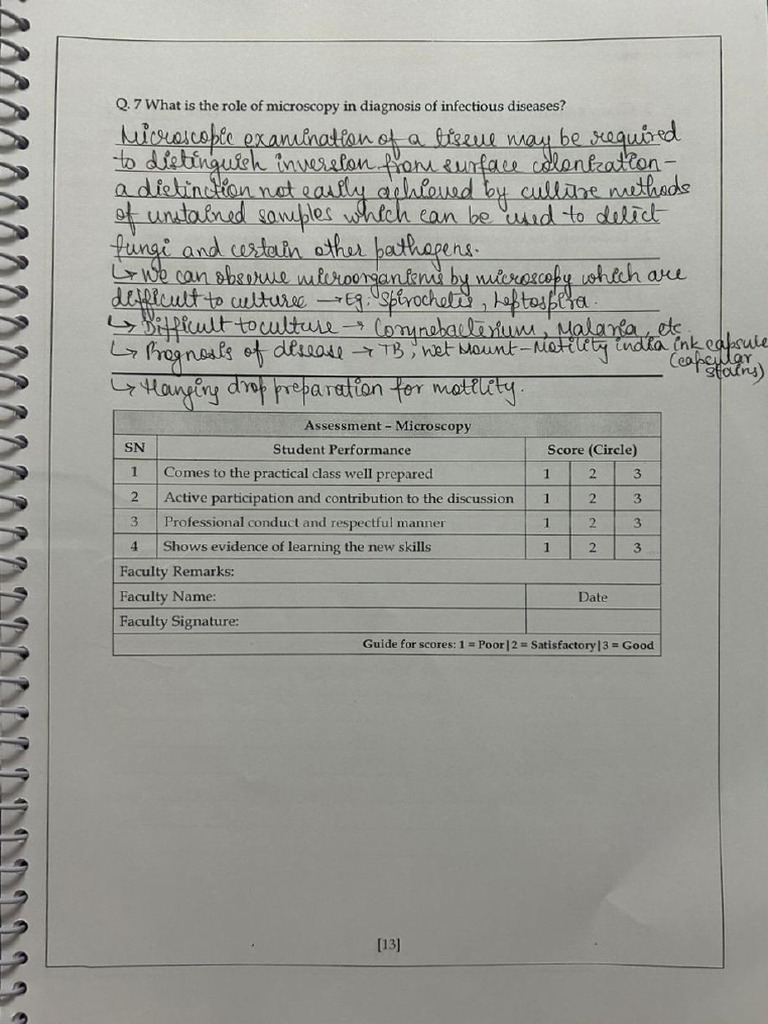 Q. 7 What is the role of microscopy in diagnosis of infectious diseases?
Microscopic examination of a tissue may be required
to distinguish inversion from surface colonization –
a distinction not easily achieved by culture methods
of unstained samples which can be used to detect
fungi and certain other pathogens.
↳ We can observe microorganisms by microscopy which are
difficult to culture → Eg: Spirochetes, Leptospira.
↳ Difficult to culture → Corynebacterium, Malaria, etc
↳ Prognosis of disease → TB; wet Mount – Motility india ink capsule
(capsular
stains)
↳ Hanging drop preparation for motility.
Assessment – Microscopy
SN Student Performance Score (Circle)
1 Comes to the practical class well prepared 1 2 3
2 Active participation and contribution to the discussion 1 2 3
3 Professional conduct and respectful manner 1 2 3
4 Shows evidence of learning the new skills 1 2 3
Faculty Remarks:
Faculty Name: Date
Faculty Signature:
Guide for scores: 1 = Poor|2 = Satisfactory|3 = Good
[13]